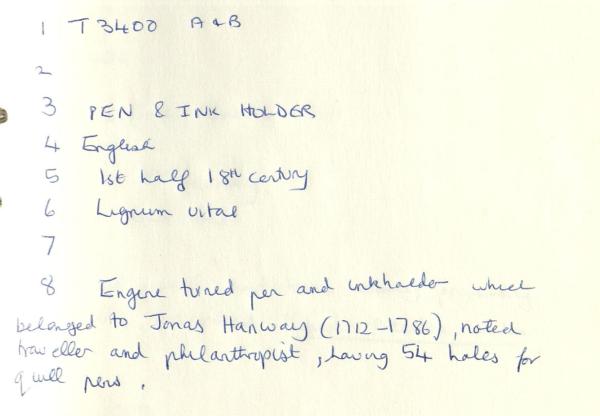 1 T 3400 A & B
2
3 PEN & INK HOLDER
4 English
5 1st half 18th century
6 Lignum vitae
7
8 Engine turned pen and inkholder which
belonged to Jonas Hanway (1712-1786), noted
traveller and philanthropist, having 54 holes for
quill pens.